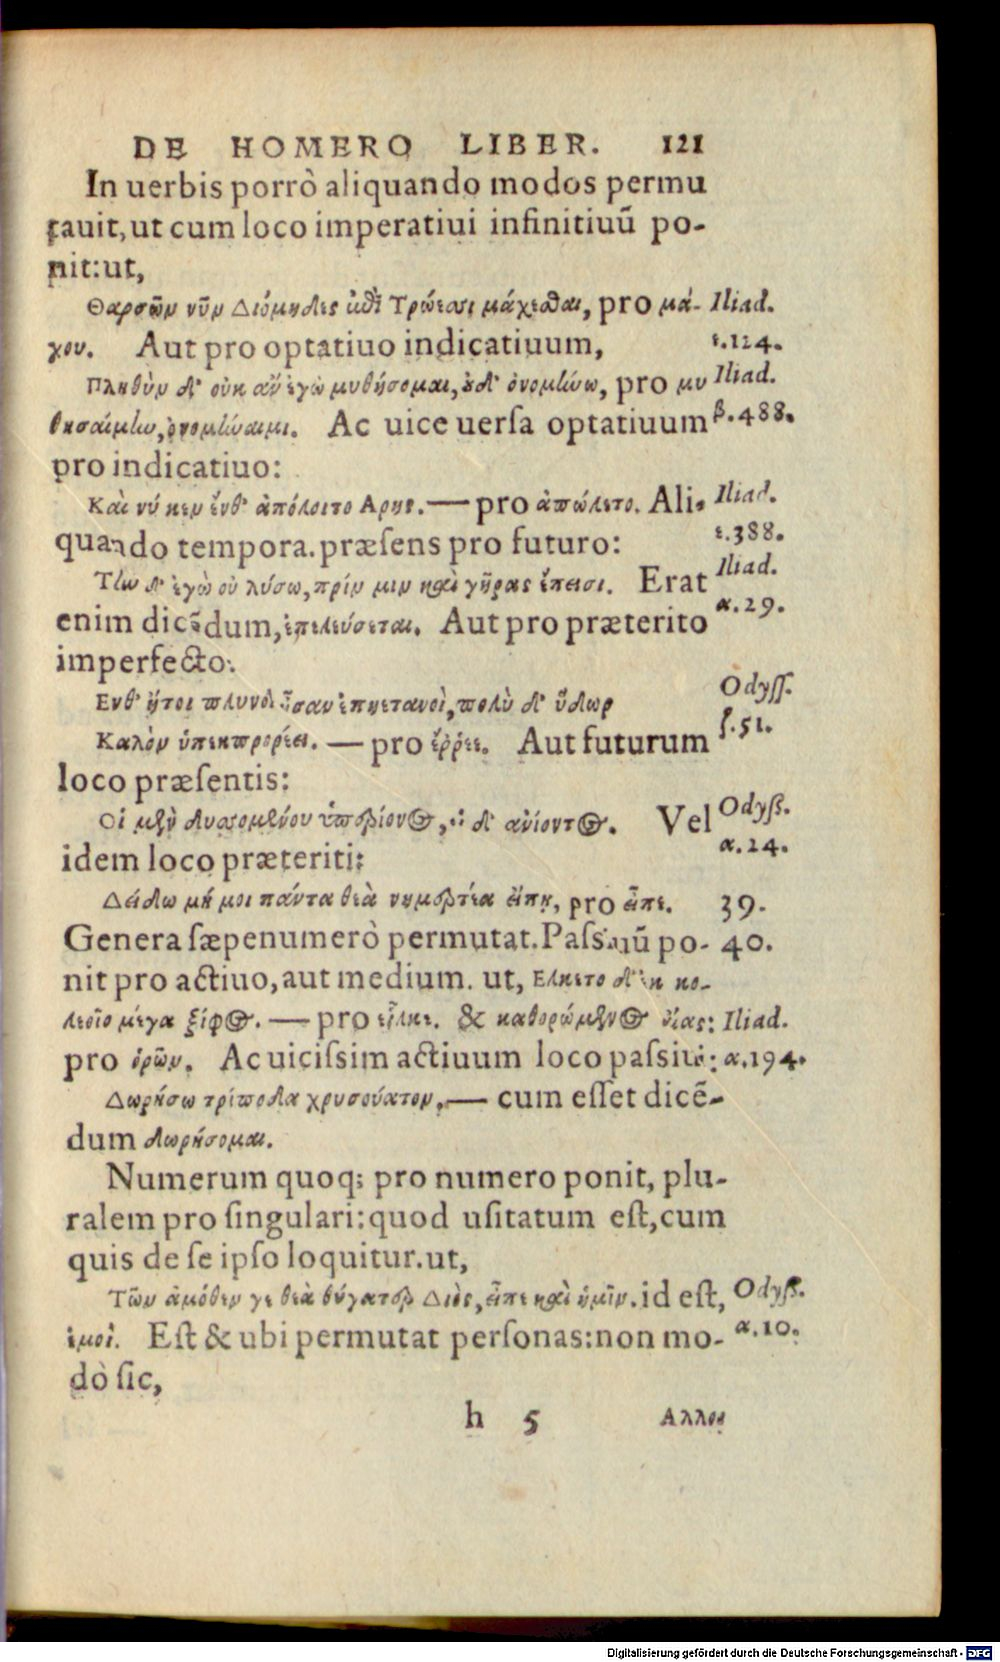 DE HOMERO LIBER. 121
In uerbis porrò aliquando modos permu
tauit, ut cum loco imperatiui infinitiuũ po-
nit: ut,
Θαρσῶν νῦν Διόμηδες ἐπὶ Τρώεσσι μάχεσθαι, pro μά- Iliad.
χου. Aut pro optatiuo indicatiuum, ε.124.
Πληθὺν δ' οὐκ ἂν ἐγὼ μυθήσομαι, οὐδ' ὀνομήνω, pro μυ Iliad.
θησαίμην, ὀνομήναιμι. Ac uice uerſa optatiuum β.488.
pro indicatiuo:
Καὶ νύ κεν ἔνθ' ἀπόλοιτο Αρης. — pro ἀπώλετο. Ali- Iliad.
quando tempora. præſens pro futuro: ε.388.
Τὴν δ' ἐγὼ οὐ λύσω, πρίν μιν καὶ γῆρας ἔπεισι. Erat Iliad.
enim dicẽdum, ἐπελεύσεται. Aut pro præterito α.29.
imperfecto:
Ενθ' ἤτοι πλυνοὶ ἦσαν ἐπηετανοὶ, πολὺ δ' ὕδωρ Odyſſ.
Καλὸν ὑπεκπρορέει. — pro ἔῤῥεε. Aut futurum ζ.51.
loco præſentis:
Οἱ μὲν δυσομένου ὑπερίονος, οἱ δ' ανίοντος. Vel Odyſs.
idem loco præteriti: α.24.
Δείδω μή μοι πάντα θεὰ νημερτέα εἴπῃ, pro εἶπε. 39.
Genera ſæpenumerò permutat. Paſsiuũ po- 40.
nit pro actiuo, aut medium. ut, Ελκετο δ' ἐκ κο-
λεοῖο μέγα ξίφος. — pro εἷλκε. & καθορώμενος αἶας: Iliad.
pro ὁρῶν. Ac uiciſsim actiuum loco paſsiui: α.194.
Δωρήσω τρίποδα χρυσούατον. — cum eſſet dicẽ-
dum δωρήσομαι.
Numerum quoq; pro numero ponit, plu-
ralem pro ſingulari: quod uſitatum eſt, cum
quis de ſe ipſo loquitur. ut,
Τῶν ἁμόθεν γε θεὰ θύγατερ Διὸς, εἶπε καὶ ἡμῖν. id eſt, Odyſs.
ἐμοί. Eſt & ubi permutat perſonas: non mo- α.10.
dò ſic,
h 5 Αλλοι
Digitalisierung gefördert durch die Deutsche Forschungsgemeinschaft - DFG